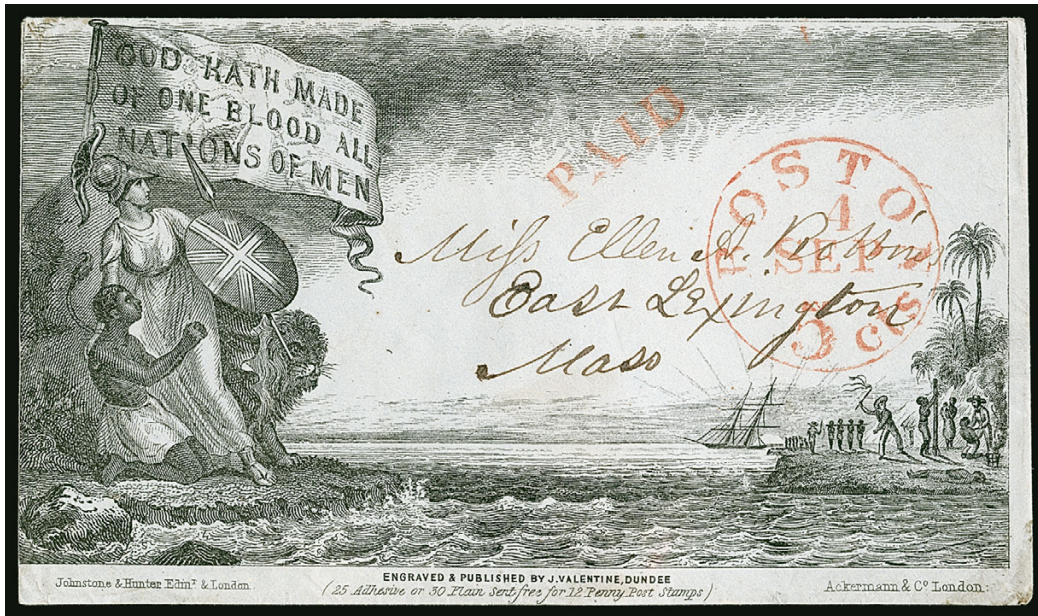 GOD HATH MADE
OF ONE BLOOD ALL
NATIONS OF MEN
PAID
BOSTON
4
SEP
5 cts
Miss Ellen A. Robbins
East Lexington
Mass
Johnstone & Hunter Edinr. & London.
ENGRAVED & PUBLISHED BY J. VALENTINE, DUNDEE
(25 Adhesive or 30 Plain Sent free for 12 Penny Post Stamps)
Ackermann & Co. London.